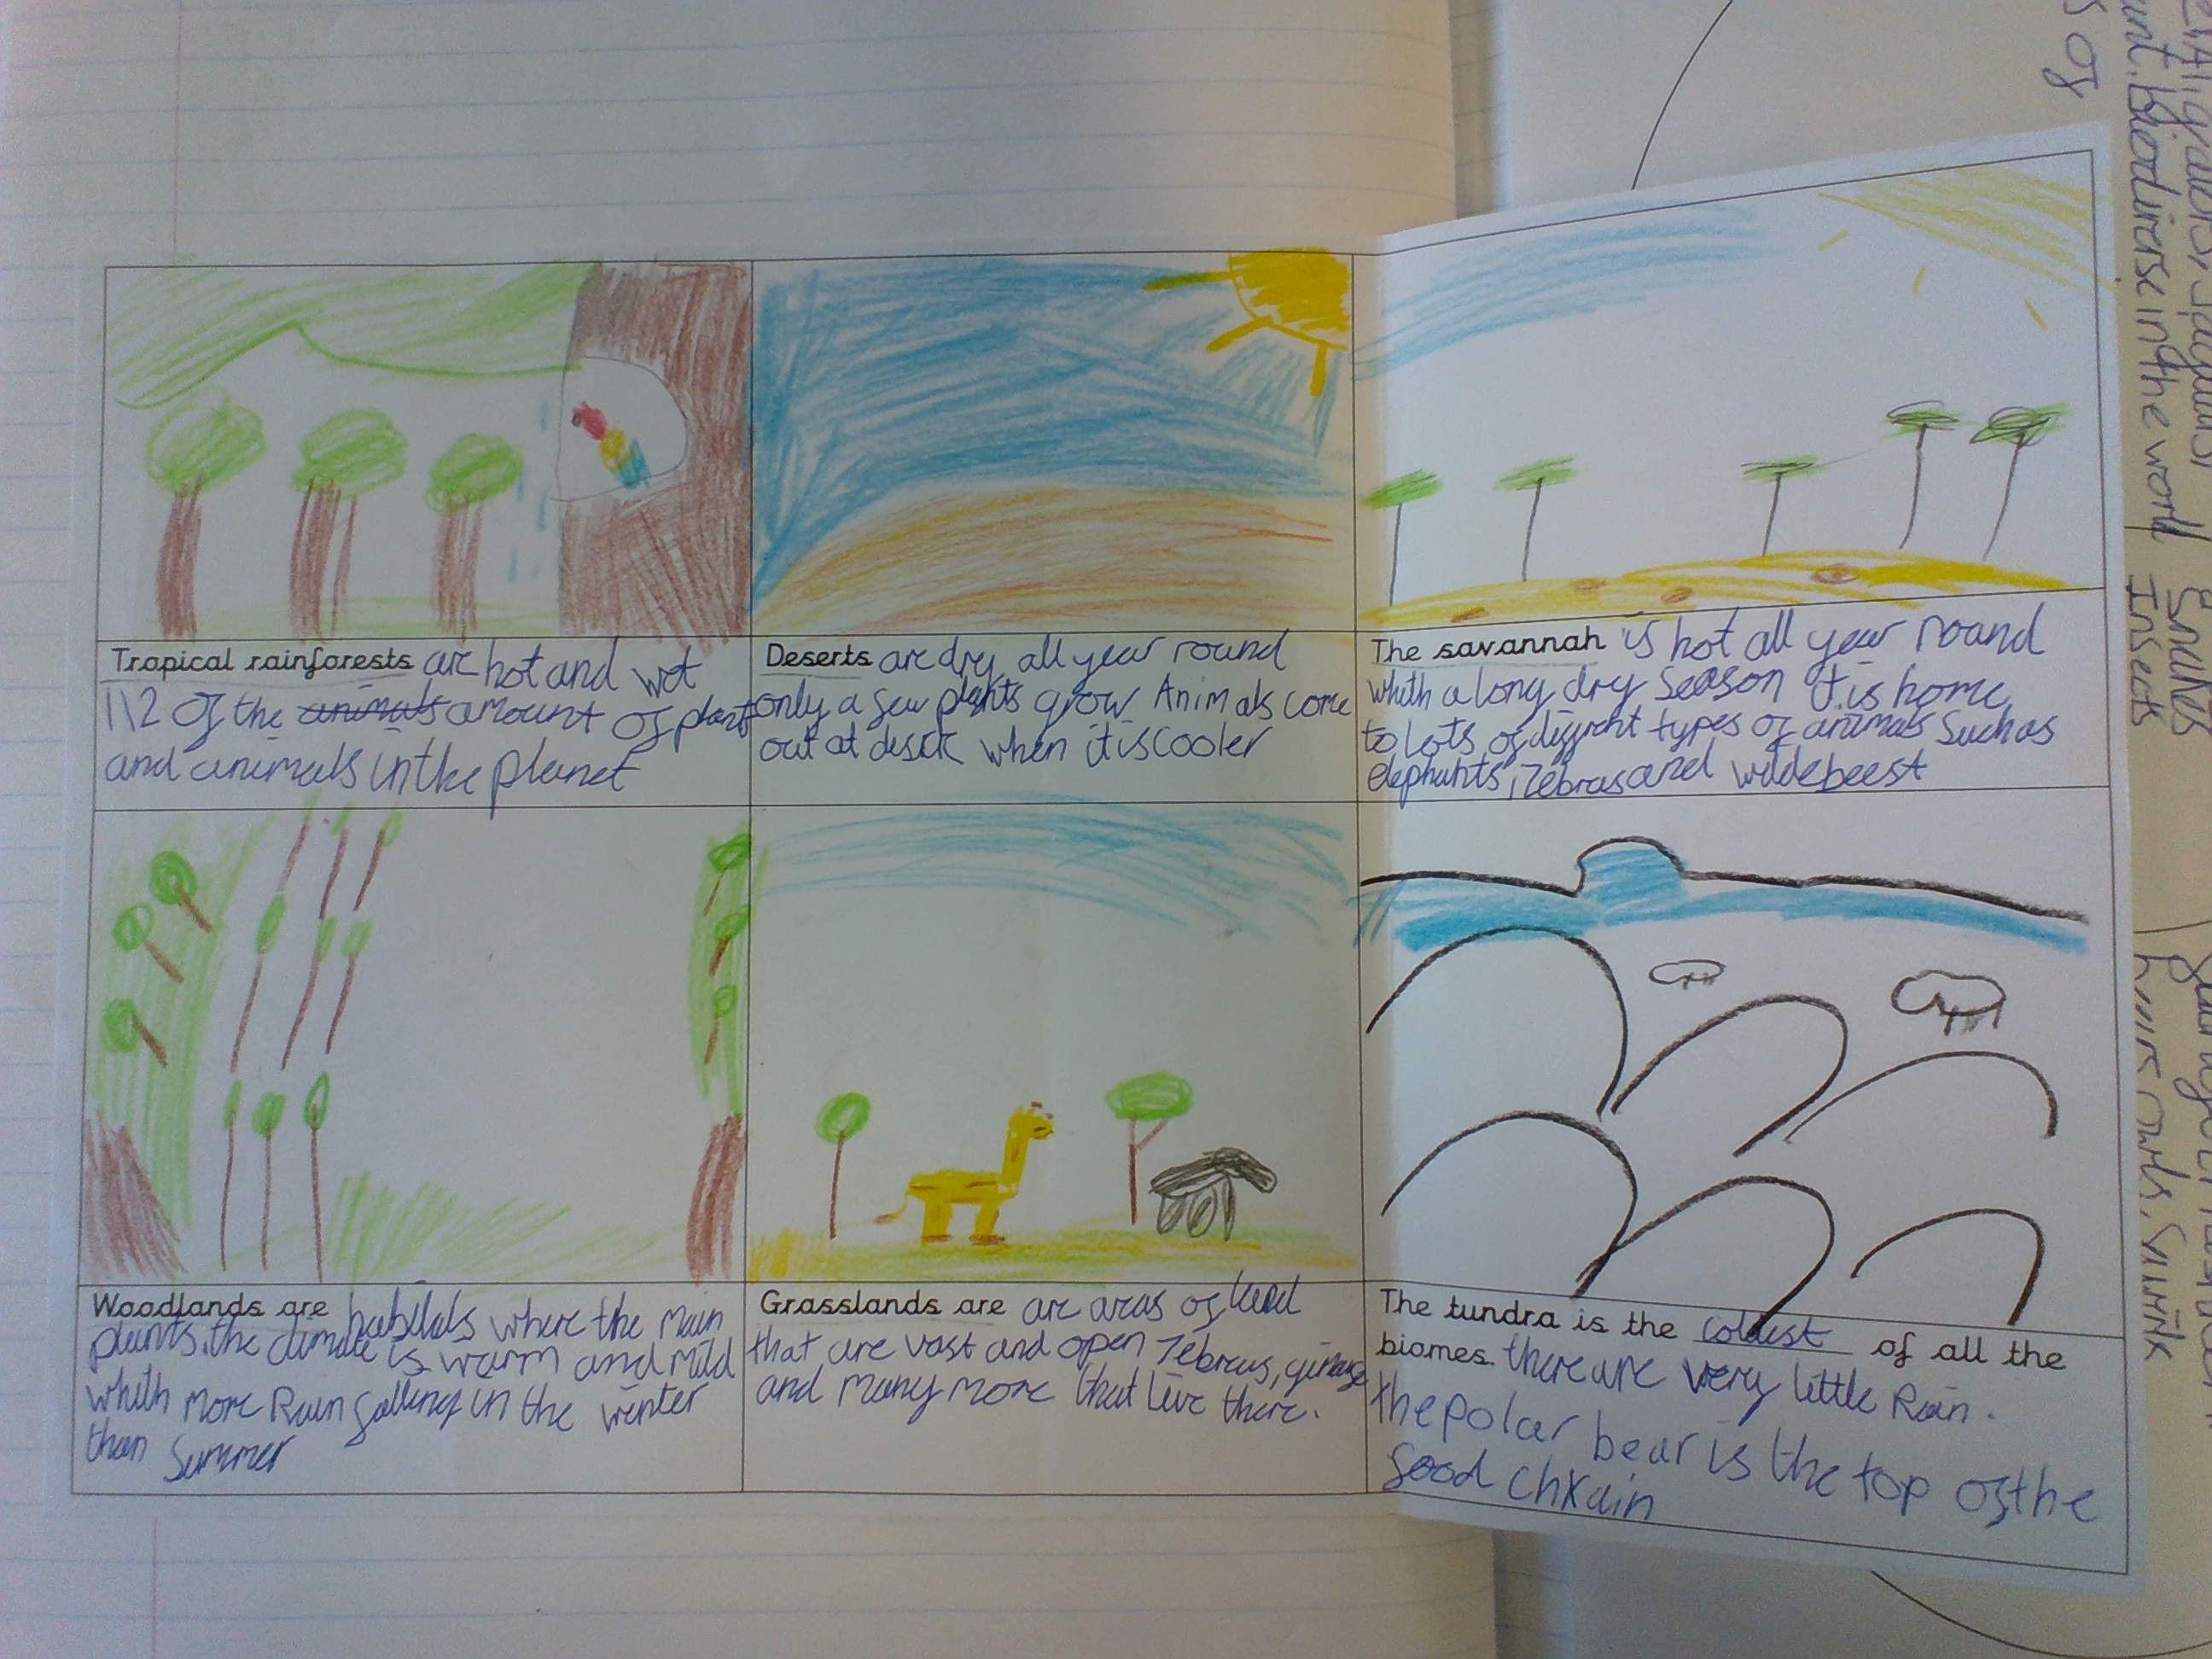 Tropical rainforests are hot and wet
1\2 of the animals amount of plant
and animals in the planet
Deserts are dry all year round
only a few plants grow Animals come
out at desck when it is cooler
The savannah is hot all year round
whith a long dry season it is home
to lots of diffrent types of animals Such as
elephants, Zebras and wildebeest
Woodlands are habitats where the main
plants. the climate is warm and mild
whith more Rain falling in the winter
than Summer
Grasslands are are areas of land
that are vast and open Zebras, girrafe
and many more that live there.
The tundra is the coldest of all the
biomes. there are very little Rain.
the polar bear is the top of the
food chxain
s of
biodirse in the world
Snakes
Insects
owls,